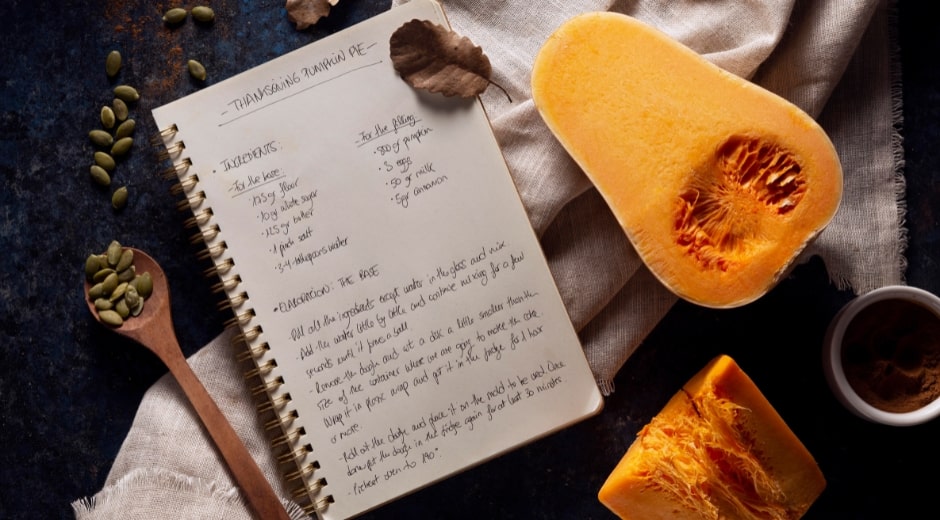 - THANKSGIVING PUMPKIN PIE -
• INGREDIENTS:
- For the base:
• 175 gr flour
• 10 gr white sugar
• 125 gr butter
• 1 pinch salt
• 3-4 tablespoons water
- For the filling
• 800 gr pumpkin
• 3 eggs
• 50 gr milk
• 5 gr cinnamon
• ELABORATION: THE BASE
- Add all the ingredients except water in the glass and mix.
- Add the water little by little and continue mixing for a few
seconds until it forms a ball.
- Remove the dough and set a disk a little smaller than the
size of the container where we are going to make the cake.
Wrap it in plastic wrap and put it in the fridge for 1 hour
or more.
- Roll out the dough and place it on the mold to be used. Once
done put the dough in the fridge again for at least 30 minutes
- Preheat oven to 190°